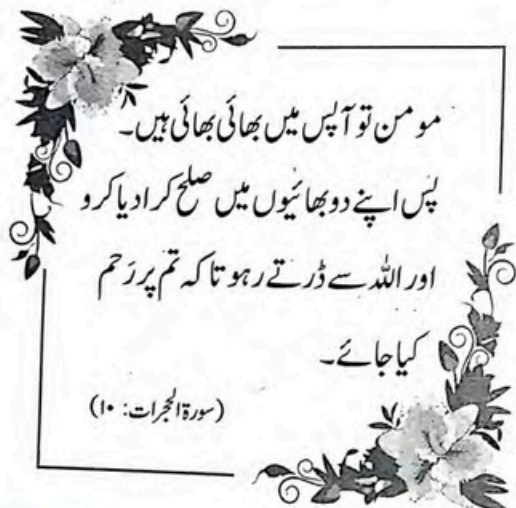 مومن تو آپس میں بھائی بھائی ہیں۔
پس اپنے دو بھائیوں میں صلح کرا دیا کرو
اور اللہ سے ڈرتے رہو تاکہ تم پر رَحم
کیا جائے۔
(سورۃ الحجرات: ۱۰)